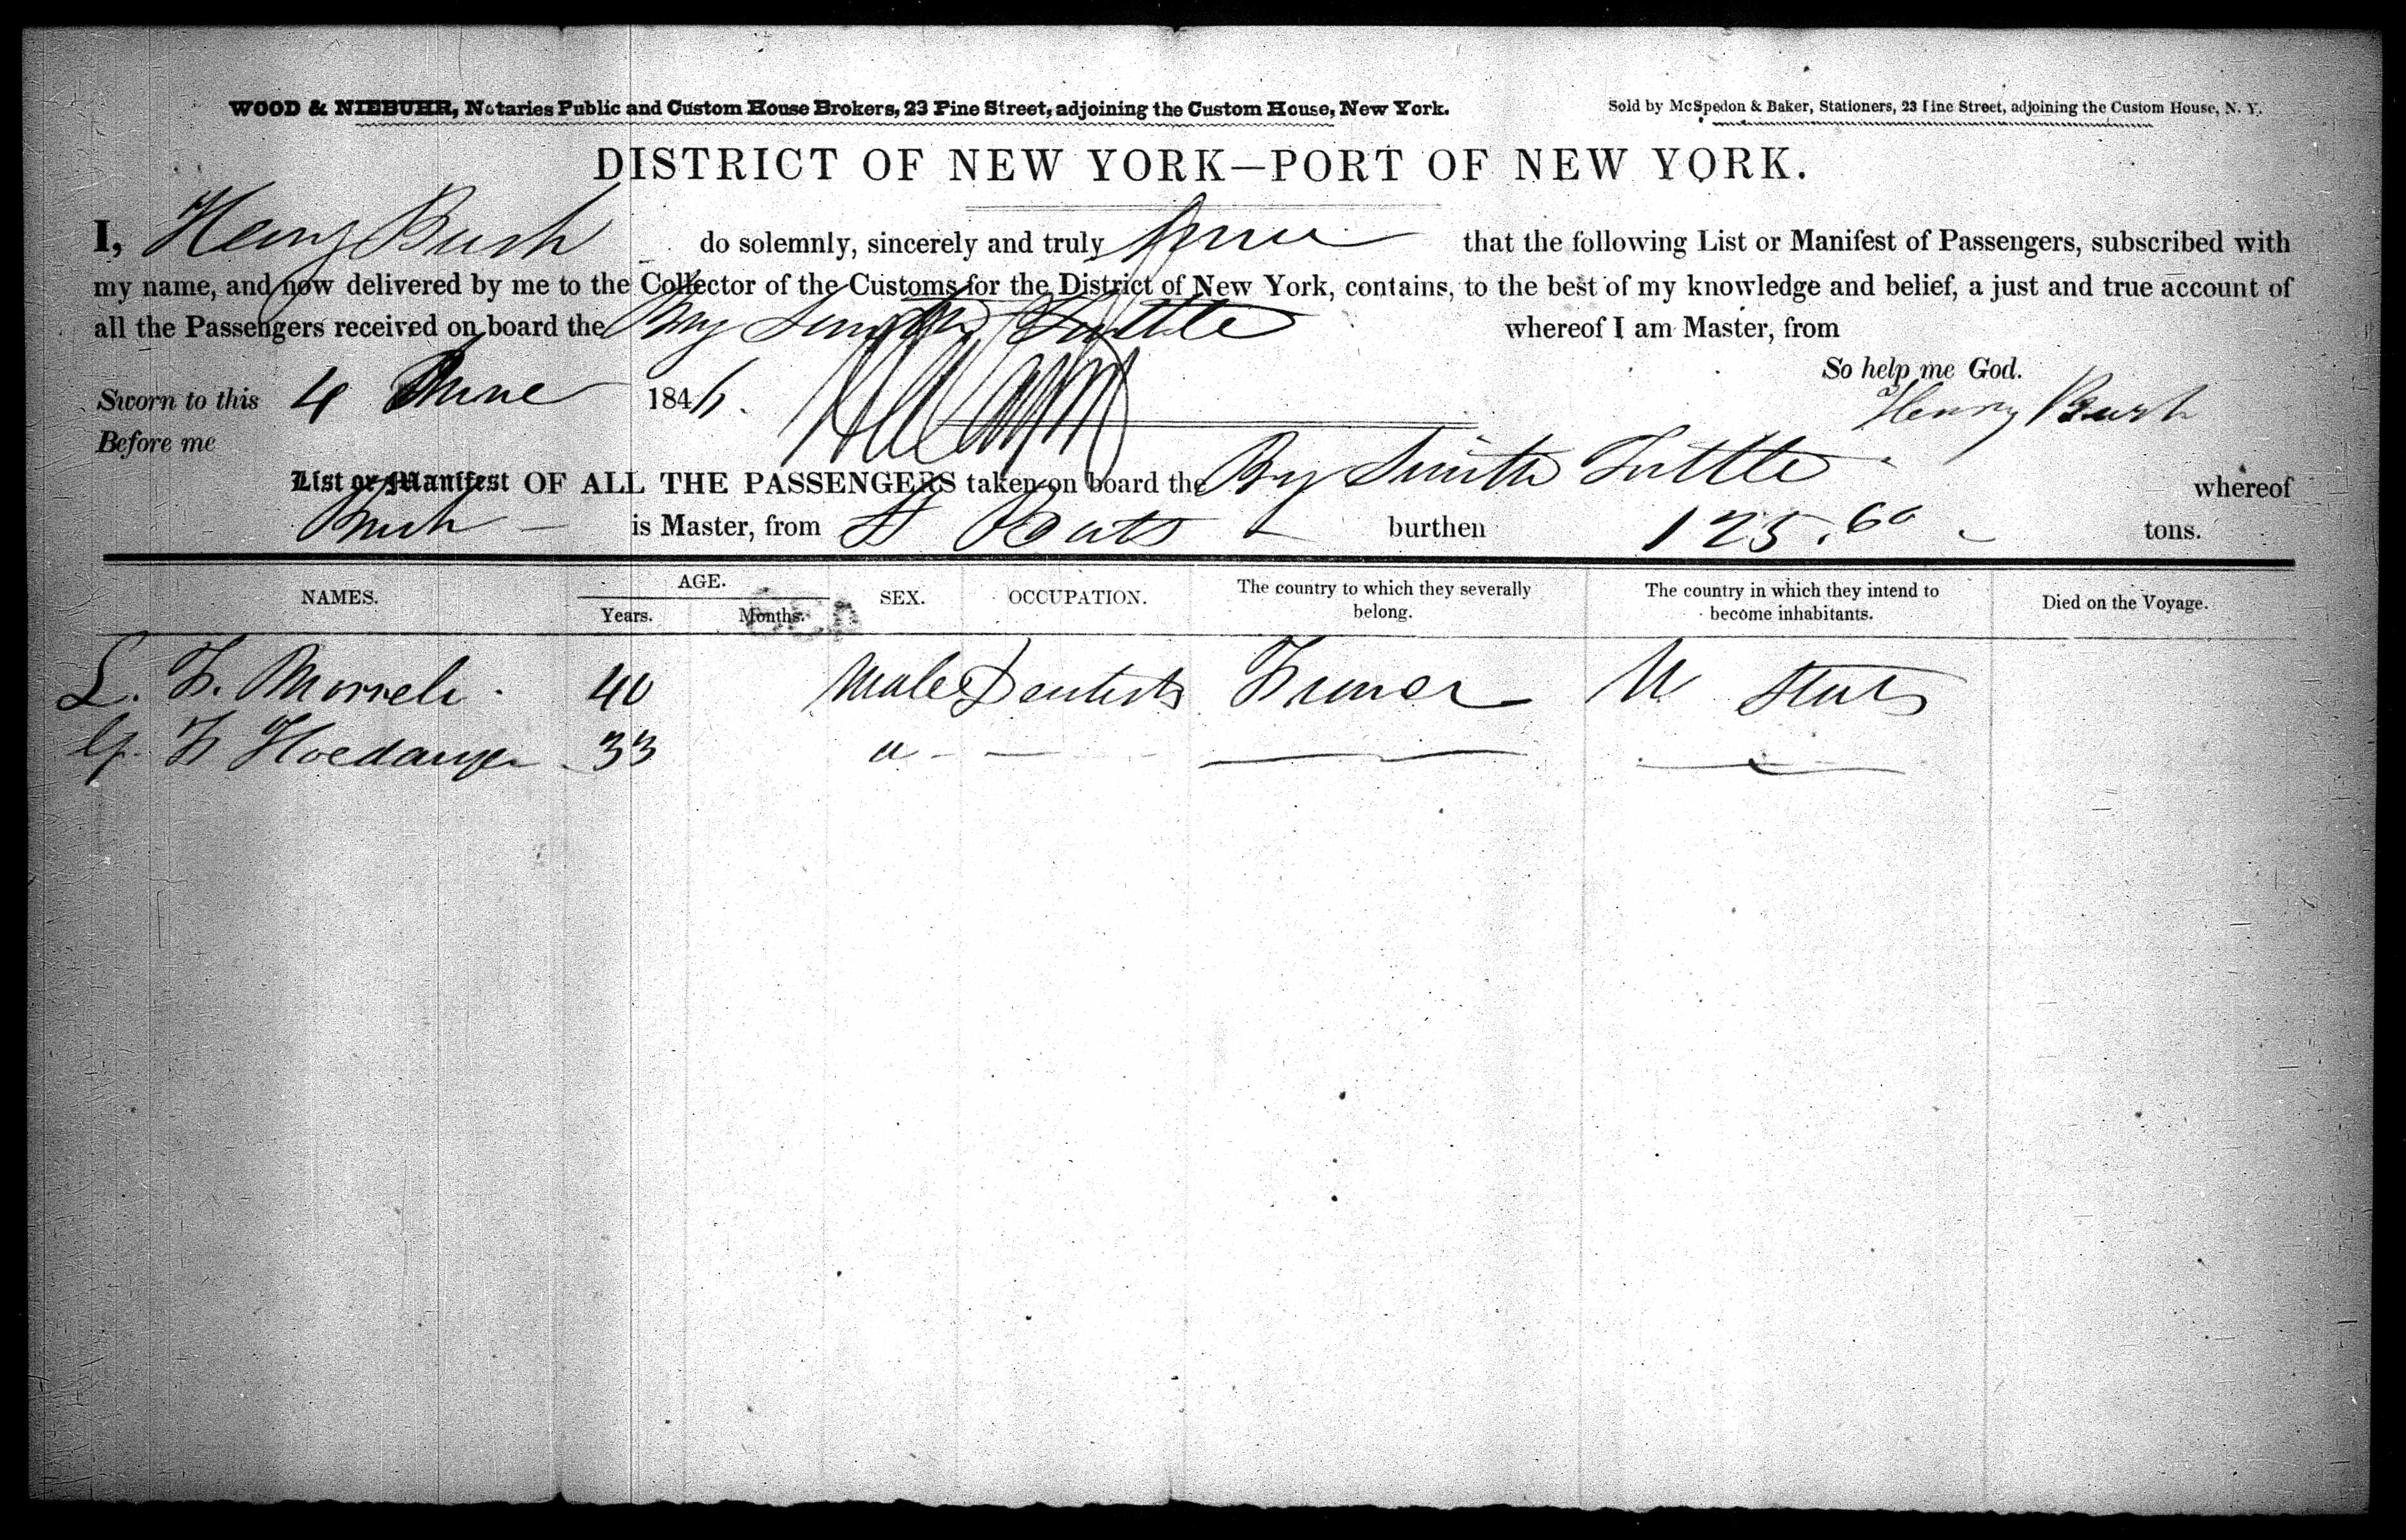 WOOD & NIEBUHR, Notaries Public and Custom House Brokers, 23 Pine Street, adjoining the Custom House, New York. Sold by McSpedon & Baker, Stationers, 23 Pine Street, adjoining the Custom House, N. Y.
DISTRICT OF NEW YORK—PORT OF NEW YORK.
I, Henry Bush do solemnly, sincerely and truly that the following List or Manifest of Passengers, subscribed with
my name, and now delivered by me to the Collector of the Customs for the District of New York, contains, to the best of my knowledge and belief, a just and true account of
all the Passengers received on board the Smith Tuttle whereof I am Master, from
So help me God.
Sworn to this 4 June 1846. Henry Bush
Before me
List or Manifest OF ALL THE PASSENGERS taken on board the Smith Tuttle whereof
Bush is Master, from St Bats burthen 125.60 tons.
NAMES. AGE. SEX. OCCUPATION. The country to which they severally belong. The country in which they intend to become inhabitants. Died on the Voyage.
Years. Months.
L. F. 40 Male Dentists France U States
F 33 "